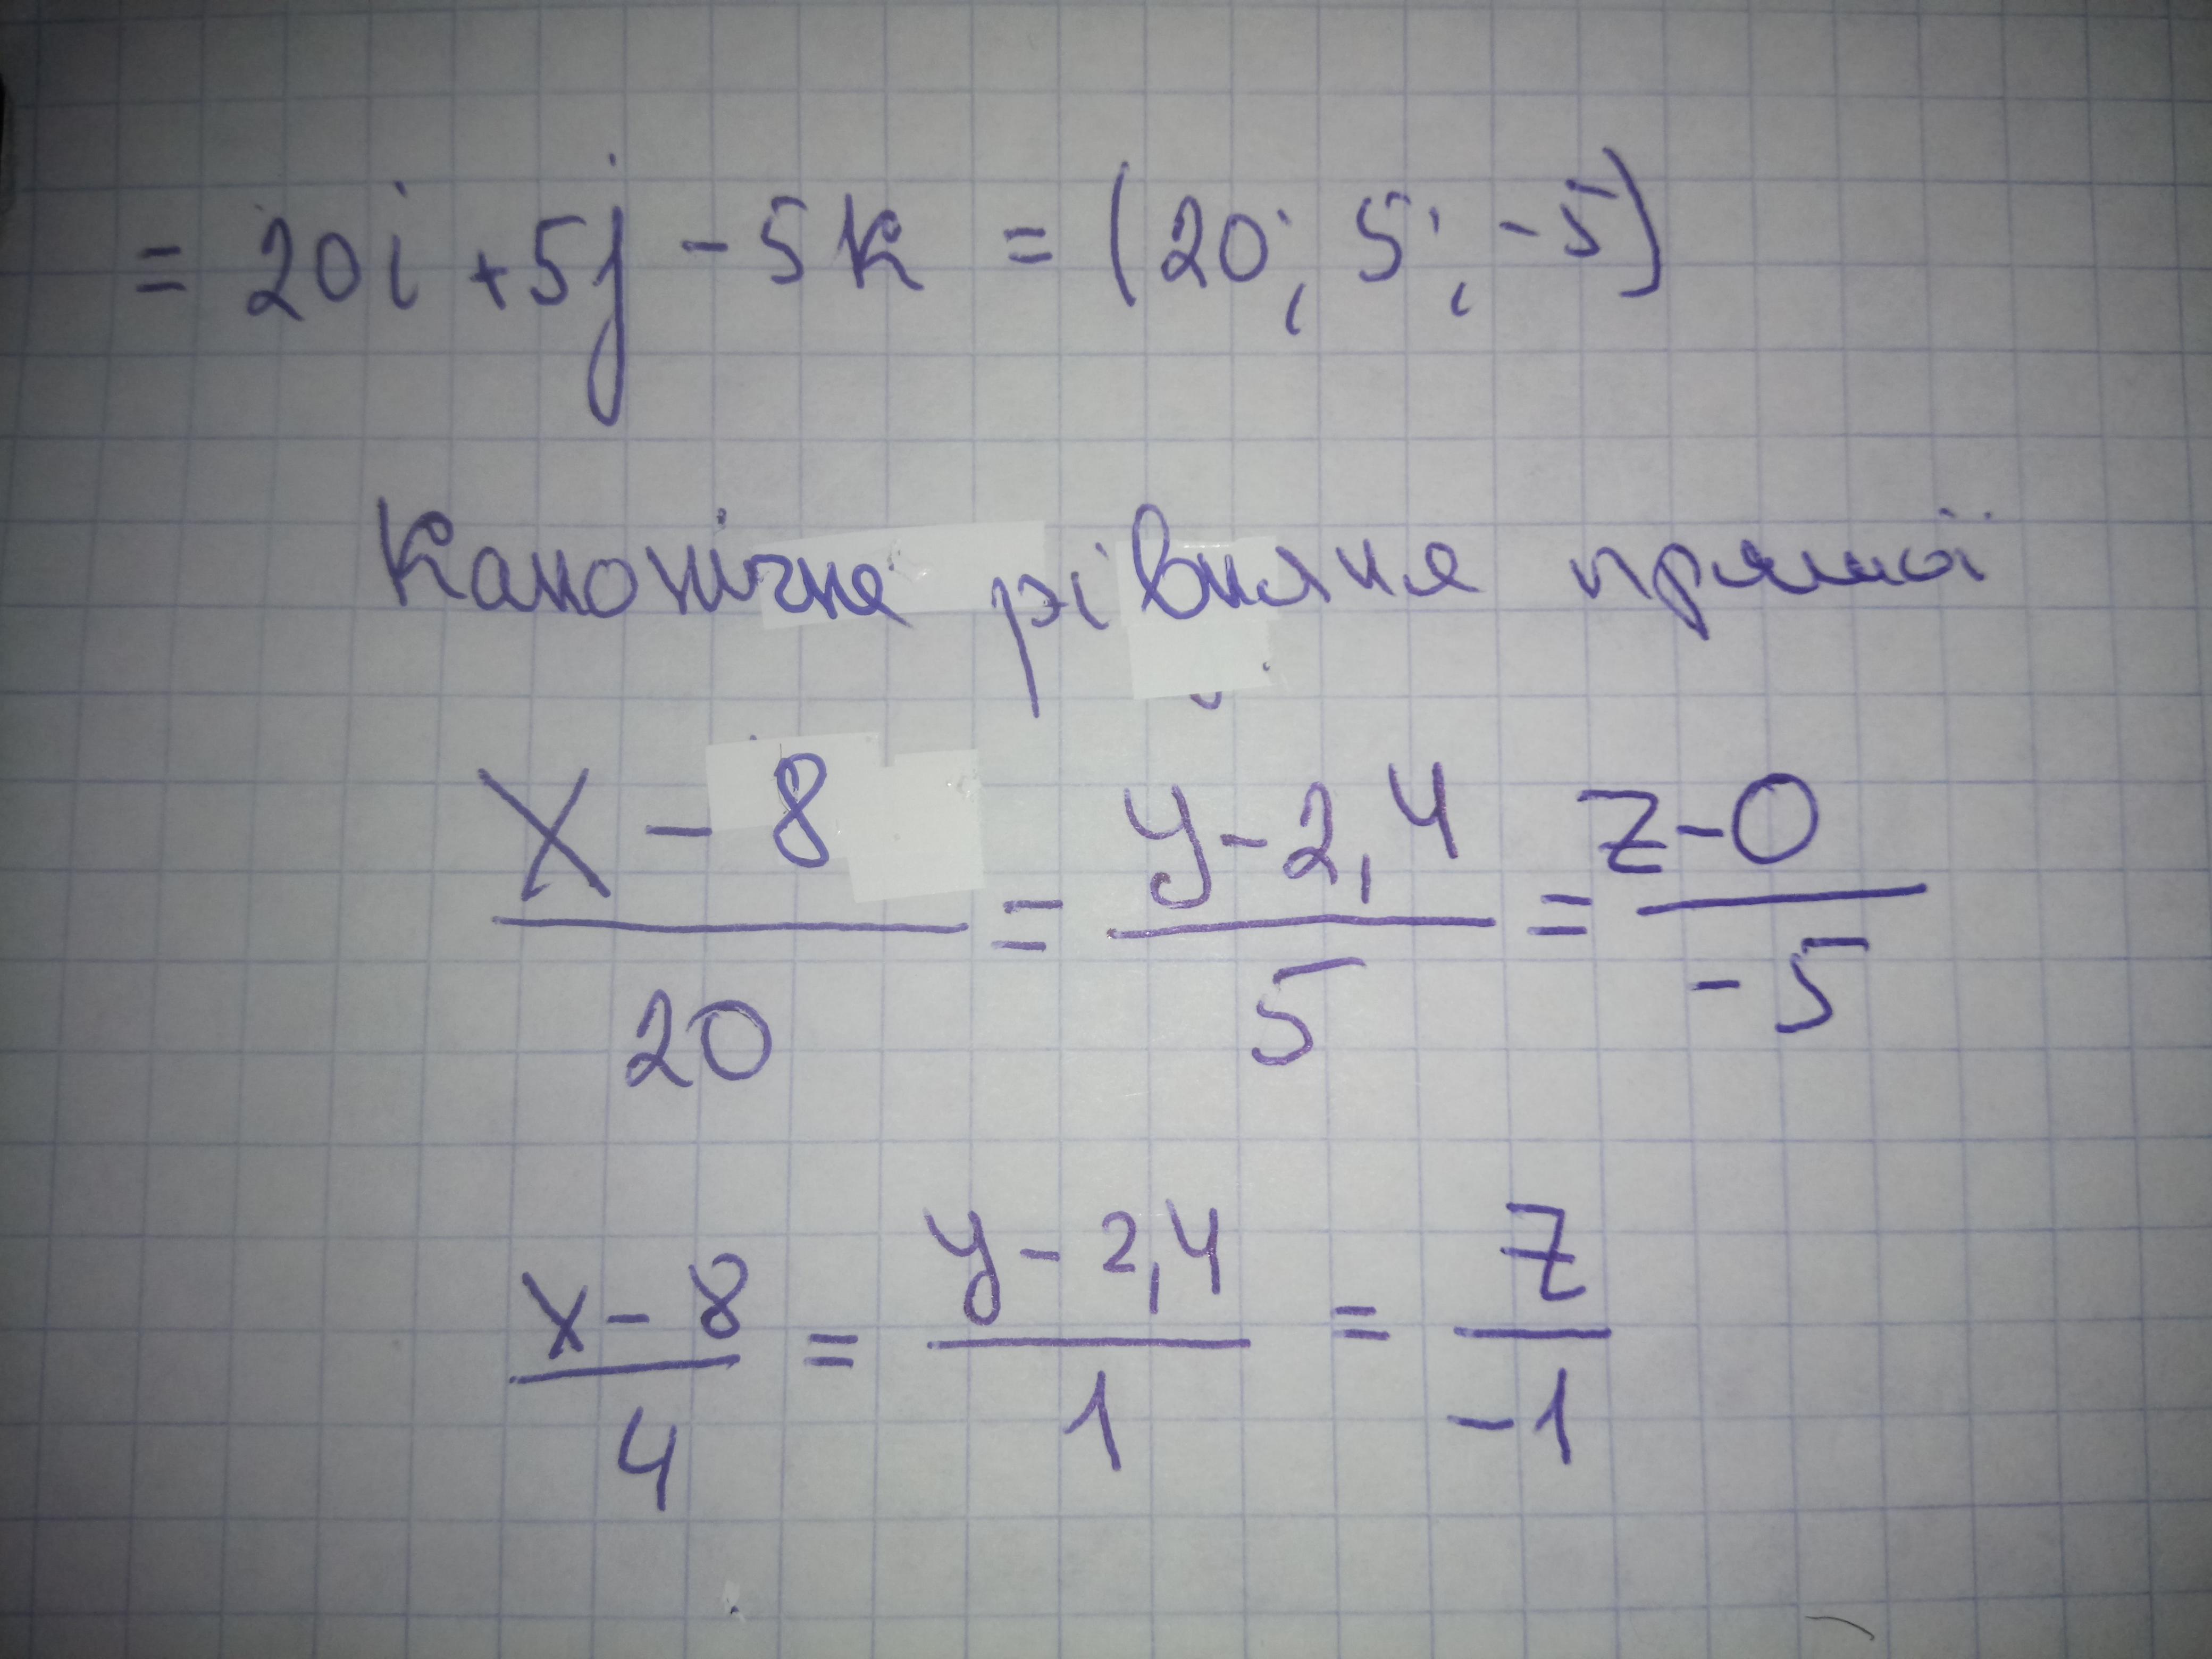 = 20i + 5j - 5k = (20; 5; -5)
Канонічне рівняня прямої
x - 8 / 20 = y - 2,4 / 5 = z - 0 / -5
x - 8 / 4 = y - 2,4 / 1 = z / -1